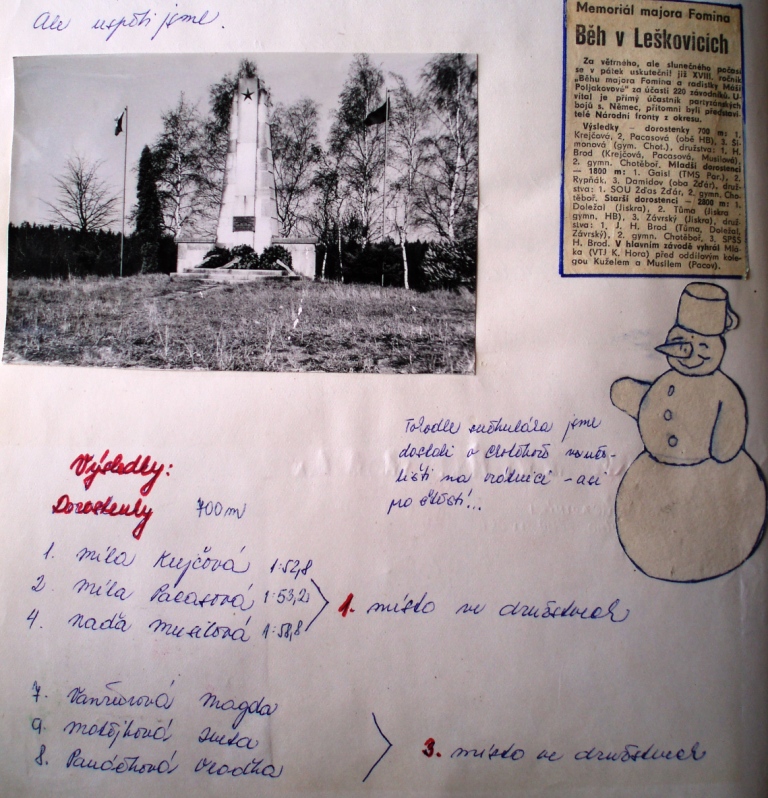 Ale uspěli jsme.
Memoriál majora Fomina
Běh v Leškovicích
Za větrného, ale slunečného počasí
se v pátek uskutečnil již XVIII. ročník
„Běhu majora Fomina a radistky Máši
Poljakovové" za účasti 220 závodníků. U-
vítal je přímý účastník partyzánských
bojů s. Němec, přítomni byli představi-
telé Národní fronty z okresu.
Výsledky - dorostenky 700 m: 1.
Krejčová, 2. Pacasová (obě HB), 3. Ši-
monová (gym. Chot.), družstva: 1. H.
Brod (Krejčová, Pacasová, Musilová),
2. gymn. Chotěboř. Mladší dorostenci
— 1800 m: 1. Gaisl (TMS Par.), 2.
Rypňák, 3. Damidov (oba Žďár), druž-
stva: 1. SOU Žďas Žďár, 2. gymn. Cho-
těboř. Starší dorostenci — 2800 m: 1.
Doležal (Jiskra), 2. Tůma (Jiskra -
gymn. HB), 3. Závrský (Jiskra), druž-
stva: 1. J. H. Brod (Tůma, Doležal,
Závrský), 2. gymn. Chotěboř, 3. SPŠS
H. Brod. V hlavním závodě vyhrál Mlá-
ka (VTJ K. Hora) před oddílovým kole-
gou Kuželem a Musilem (Pacov).
Tohodle sněhuláka jsme
dostali v
na vrátnici - asi
pro štěstí!...
Výsledky:
Dorostenky 700 m
1. Míla Krejčová 1:52,8
2. Míla Pacasová 1:53,2
4. Naďa Musilová 1:58,8
1. místo ve družstvech
7. Vančurová Magda
9. Matějková
8. Vlaďka
3. místo ve družstvech